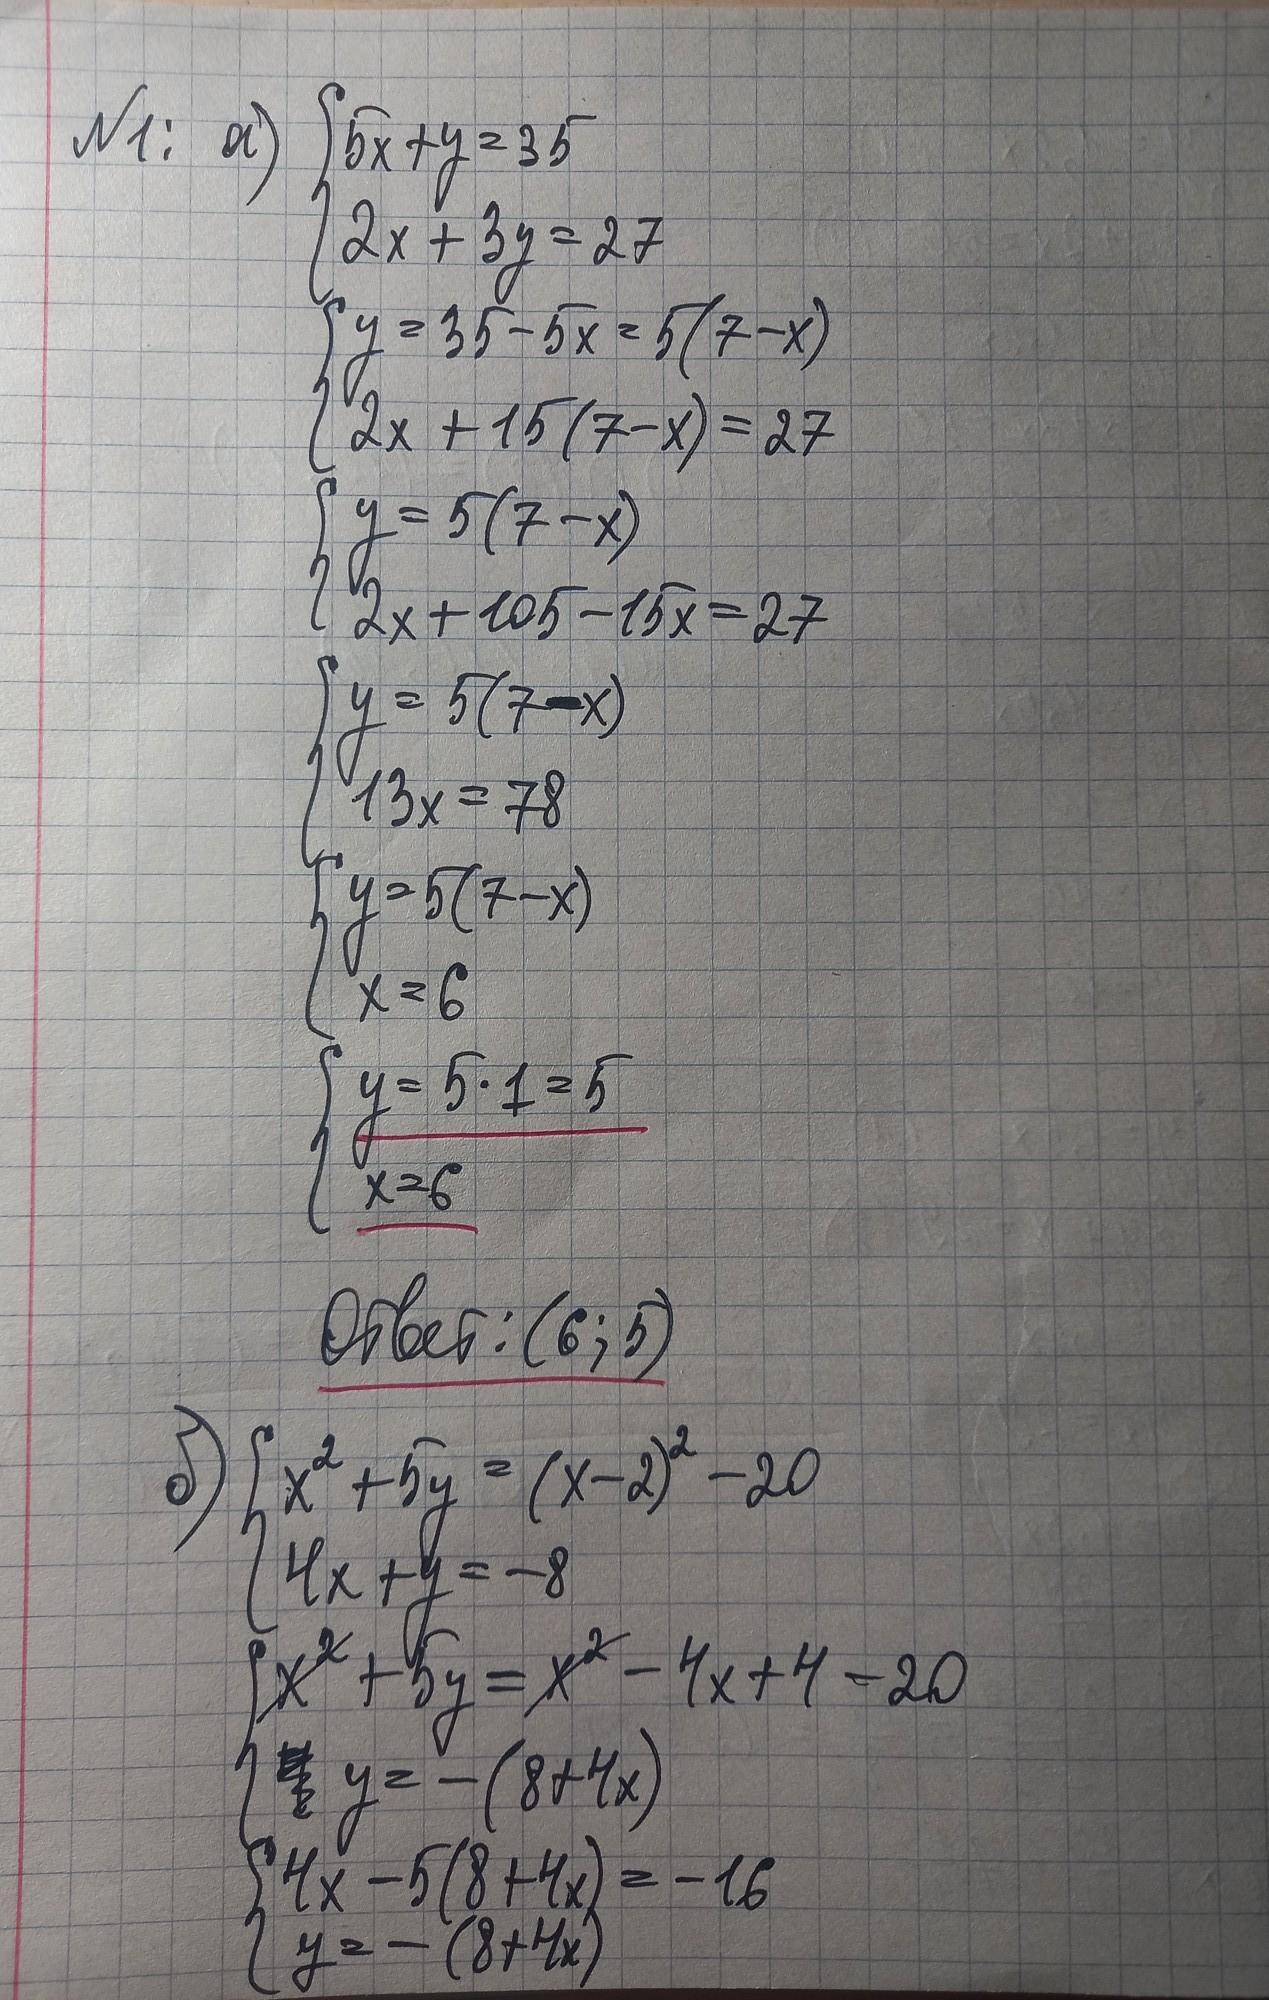 №1: а) 5x+y=35
2x+3y=27
y=35-5x=5(7-x)
2x+15(7-x)=27
y=5(7-x)
2x+105-15x=27
y=5(7-x)
13x=78
y=5(7-x)
x=6
y=5·1=5
x=6
Ответ: (6;5)
б) x²+5y=(x-2)²-20
4x+y=-8
x²+5y=x²-4x+4-20
y=-(8+4x)
4x-5(8+4x)=-16
y=-(8+4x)